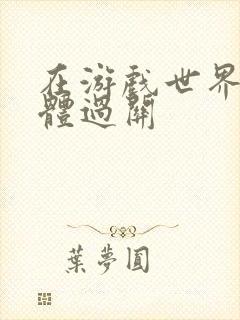 在游戏世界
體過關
葉夢圓